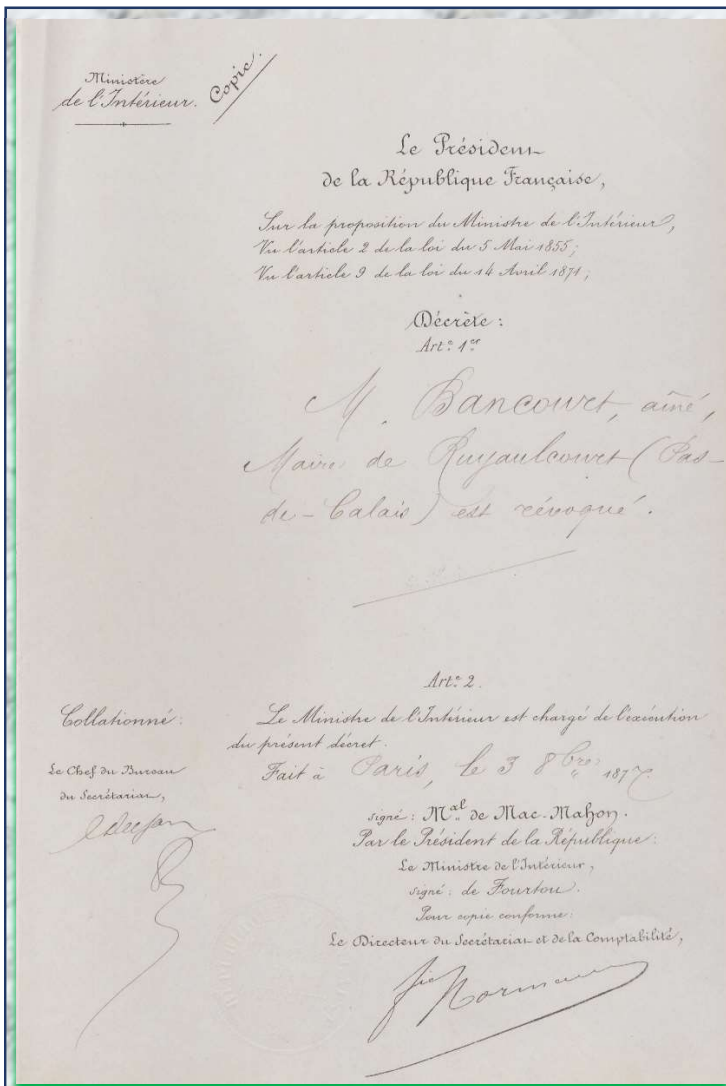 Ministère
de l'Intérieur.
Copie.
Le Président
de la République Française,
Sur la proposition du Ministre de l'Intérieur,
Vu l'article 2 de la loi du 5 Mai 1855;
Vu l'article 9 de la loi du 14 Avril 1871;
Décrète:
Art.e 1er
M. Bancourt, aîné,
Maire de Ruyaulcourt (Pas-
de-Calais) est révoqué.
Art.e 2.
Le Ministre de l'Intérieur est chargé de l'exécution
du présent décret.
Fait à Paris, le 3 8bre 1877.
signé: Mal de Mac-Mahon.
Par le Président de la République:
Le Ministre de l'Intérieur,
signé: de Fourtou.
Pour copie conforme:
Le Directeur du Secrétariat et de la Comptabilité,
Collationné:
Le Chef du Bureau
du Secrétariat,